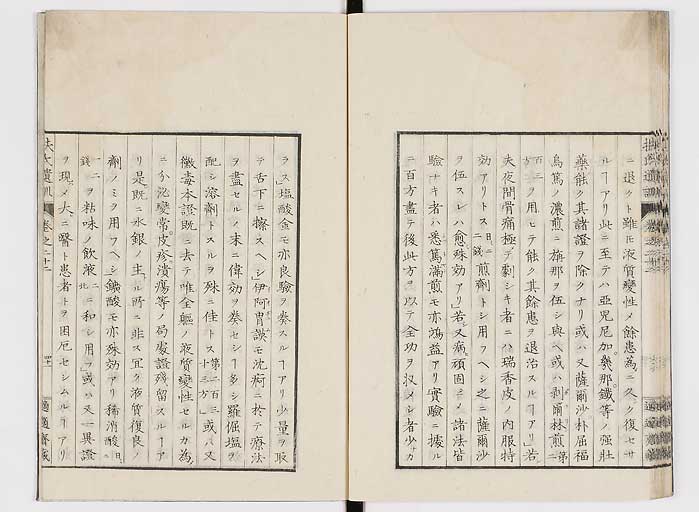 ニ退クト雖𪜈液質變性メ餘患爲ニ久ク復セサ
ルヿアリ此ニ至テハ亞兒尼加幾那鐵等ノ強壯
藥能ク其諸證ヲ除クナリ或ハ又薩爾沙朴屈福
烏篤ノ濃煎ニ旃那ヲ伍シ與ヘ或ハ剥爾林煎第二
百三方ヲ用ヒテ能ク其餘患ヲ退治スルヿアリ若
夫夜間骨痛極テ劇シキ者ニハ瑞香皮ノ内服特
効アリトス日二錢煎劑トシ用フヘシ之ニ薩爾沙
ヲ伍スレハ愈殊効アリ若又病頑固ニメ諸法皆
驗ナキ者ハ悉篤滿煎モ亦鴻益アリ實驗ニ據ル
ニ百方盡テ後此方ヲ以テ全功ヲ収メシ者少カ
ラス塩酸金モ亦良驗ヲ奏スルヿアリ少量ヲ取
テ舌下ニ擦スヘシ伊阿胄謨モ沈痾ニ於テ療法
ヲ盡セルノ末ニ偉効ヲ奏セシヿ多シ羅倔塩ヲ
配シ溶劑トスルヲ殊ニ佳トス第二百三十三方或ハ又
黴毒本證既ニ去テ唯全軀ノ液質變性セルカ爲
ニ分泌變常皮疹潰瘍等ノ局處證殘留スルヿア
リ是既ニ水銀ノ主ル所ニ非ス宜ク液質復良ノ
劑ノミ用フヘシ鐵酸モ亦殊効アリ稀消酸日一
錢二ヲ粘味ノ飲液ニ和シ用フ或ハ又一異證
ヲ現メ大ニ醫ト患者トヲ困厄セシムルヿアリ
扶氏遺訓 卷之二十二 四十 適適齋藏